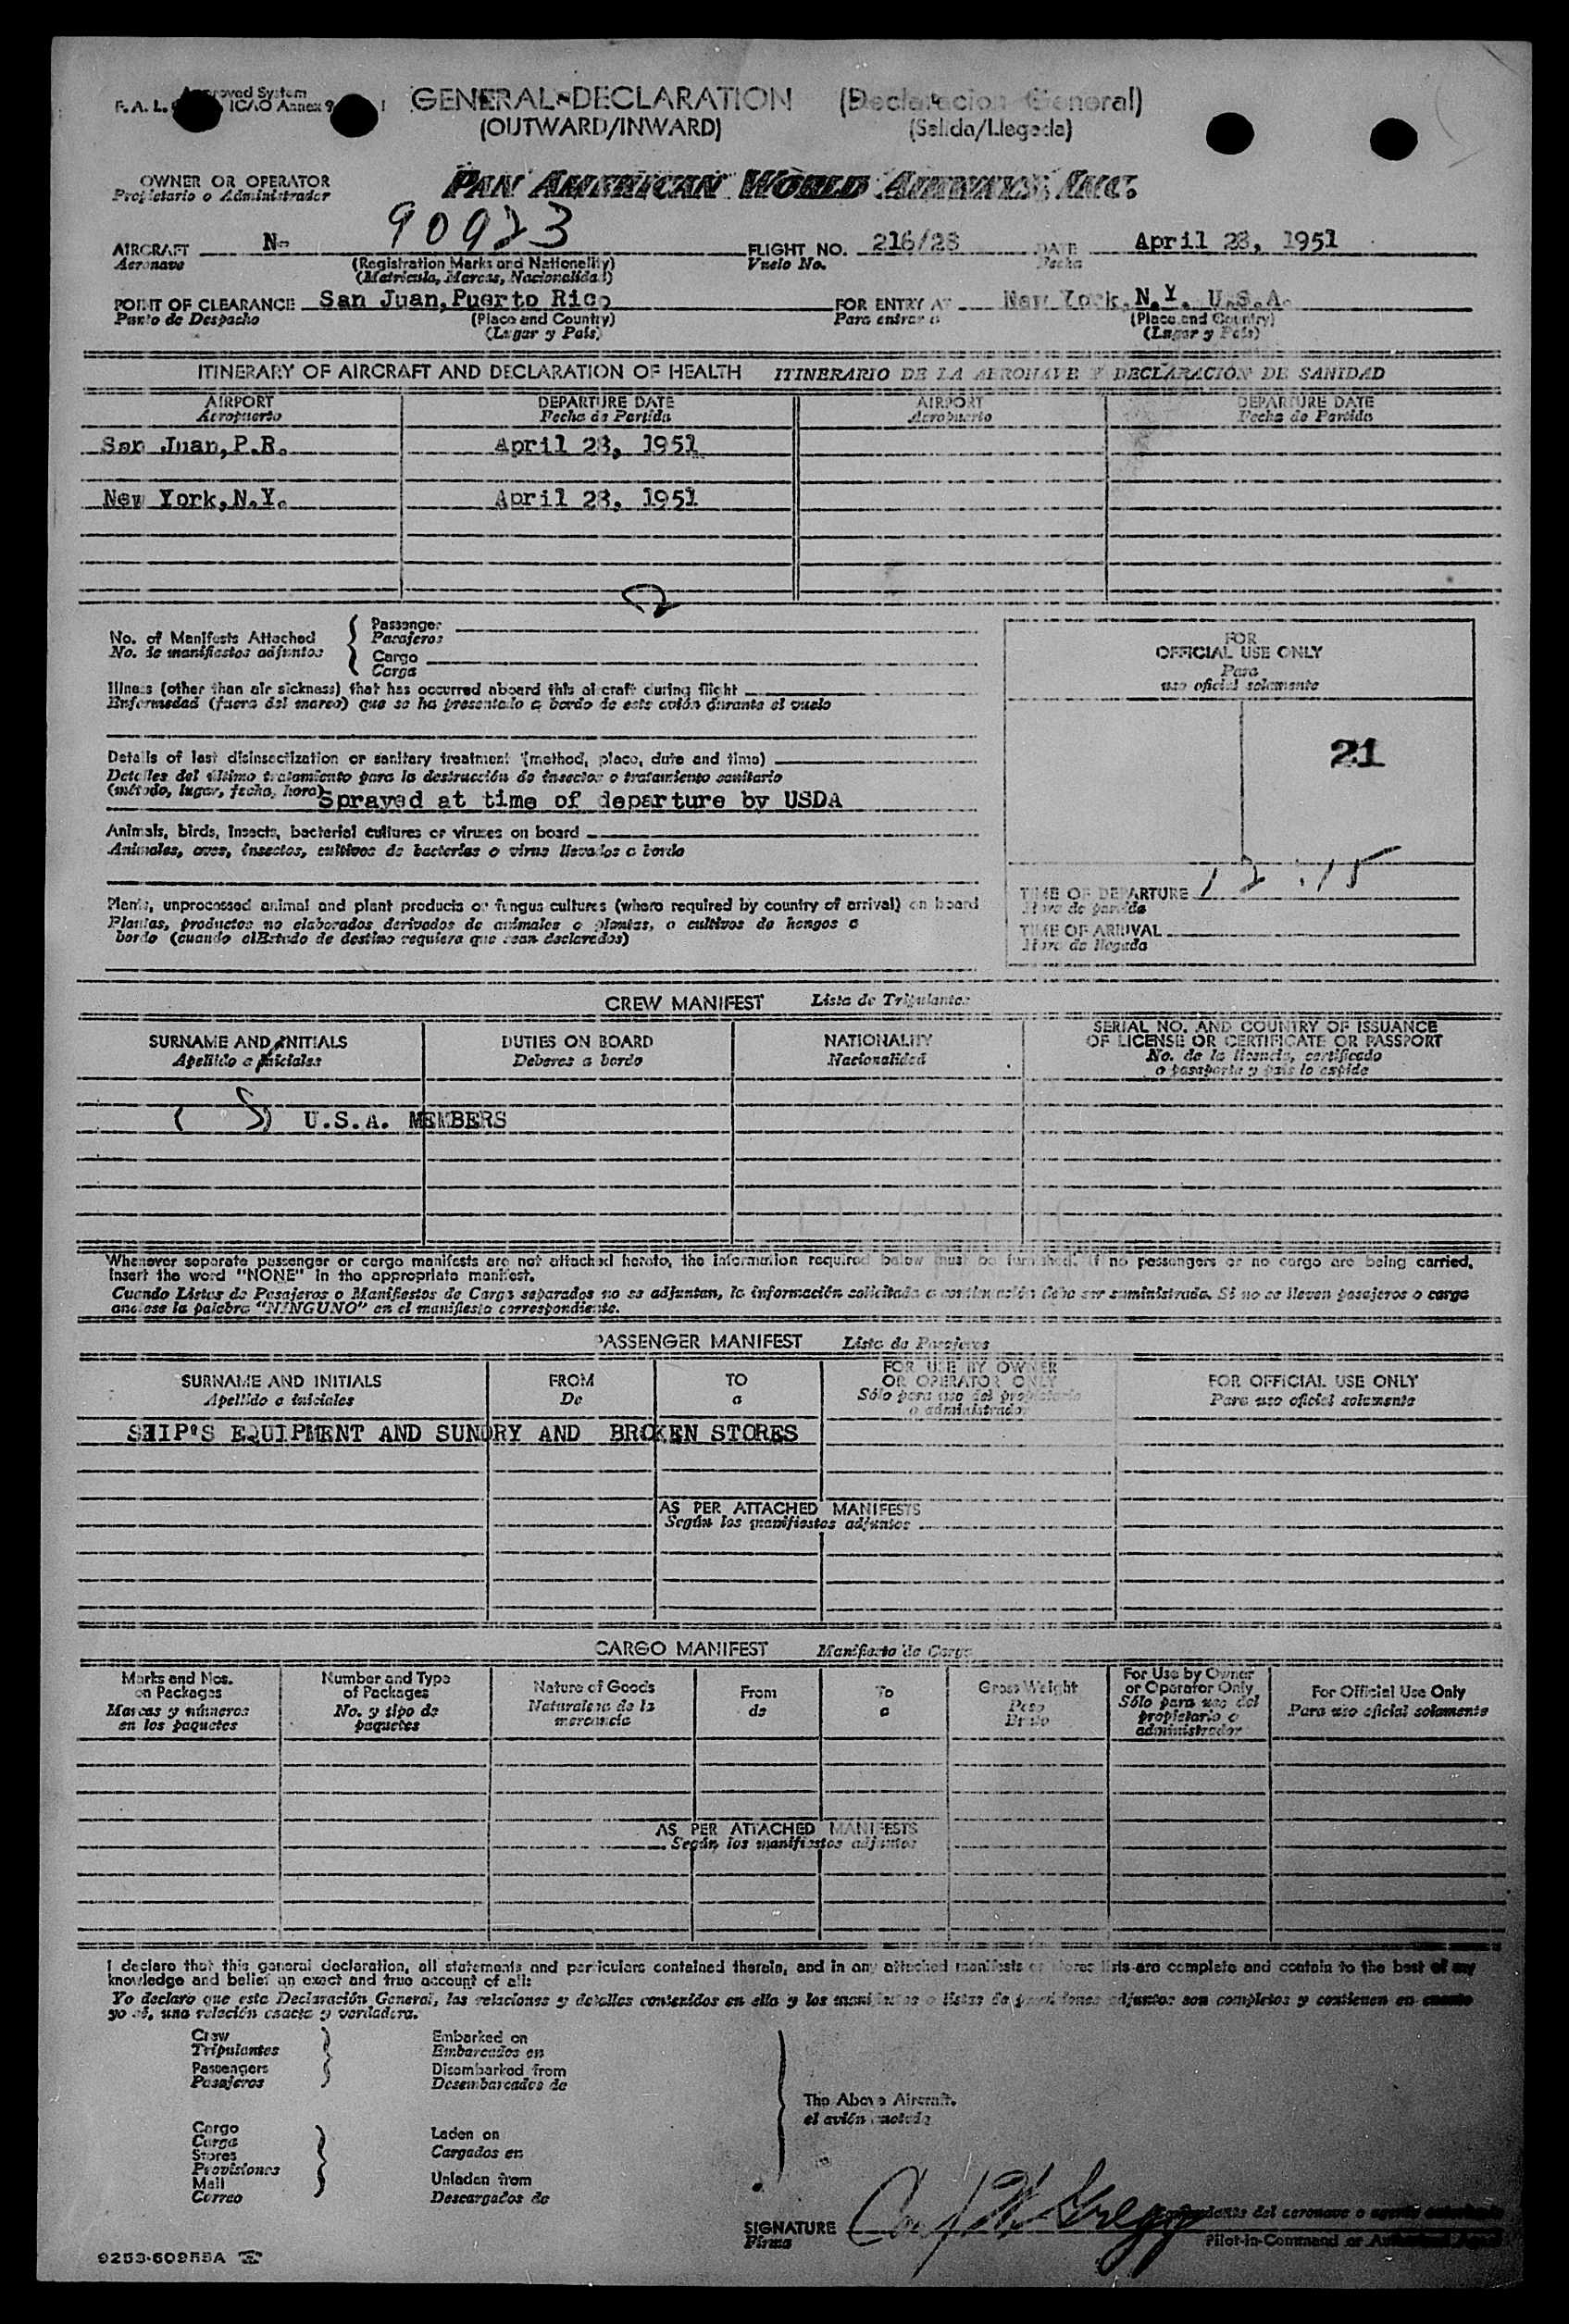 Approved System
F. A. L. ICAO Annex 9
GENERAL DECLARATION (Declaracion General)
(OUTWARD/INWARD) (Salida/Llegada)
OWNER OR OPERATOR PAN AMERICAN WORLD AIRWAYS INC.
Propietario o Administrador
AIRCRAFT N- 90923 FLIGHT NO. 216/28 DATE April 28, 1951
Aeronave (Registration Marks and Nationality) Vuelo No. Fecha
(Matricula, Marcas, Nacionalidad)
POINT OF CLEARANCE San Juan, Puerto Rico FOR ENTRY AT New York, N.Y. U.S.A.
Punto de Despacho (Place and Country) Para entrar a (Place and Country)
(Lugar y Pais) (Lugar y Pais)
ITINERARY OF AIRCRAFT AND DECLARATION OF HEALTH ITINERARIO DE LA AERONAVE Y DECLARACIÓN DE SANIDAD
AIRPORT DEPARTURE DATE AIRPORT DEPARTURE DATE
Aeropuerto Fecha de Partida Aeropuerto Fecha de Partida
San Juan, P.R. April 28, 1951
New York, N.Y. April 28, 1951
2
No. of Manifests Attached { Passenger
No. de manifiestos adjuntos Pasajeros
Cargo
Carga
FOR
OFFICIAL USE ONLY
Para
uso oficial solamente
Illness (other than air sickness) that has occurred aboard this aircraft during flight
Enfermedad (fuera del mareo) que se ha presentado a bordo de este avión durante el vuelo
21
Details of last disinsectization or sanitary treatment (method, place, date and time)
Detalles del último tratamiento para la destrucción de insectos o tratamiento sanitario
(método, lugar, fecha, hora) Sprayed at time of departure by USDA
Animals, birds, insects, bacterial cultures or viruses on board
Animales, aves, insectos, cultivos de bacterias o virus llevados a bordo
Plants, unprocessed animal and plant products or fungus cultures (where required by country of arrival) on board
Plantas, productos no elaborados derivados de animales o plantas, o cultivos de hongos a
bordo (cuando el Estado de destino requiera que sean declarados)
TIME OF DEPARTURE 12:15
Hora de partida
TIME OF ARRIVAL
Hora de llegada
CREW MANIFEST Lista de Tripulantes
SURNAME AND INITIALS DUTIES ON BOARD NATIONALITY SERIAL NO. AND COUNTRY OF ISSUANCE
Apellido e iniciales Deberes a bordo Nacionalidad OF LICENSE OR CERTIFICATE OR PASSPORT
No. de la licencia, certificado
o pasaporte y pais lo expide
( 5) U.S.A. MEMBERS
Whenever separate passenger or cargo manifests are not attached hereto, the information required below must be furnished. If no passengers or no cargo are being carried,
insert the word "NONE" in the appropriate manifest.
Cuando Listas de Pasajeros o Manifiestos de Carga separados no se adjuntan, la información solicitada a continuación debe ser suministrada. Si no se llevan pasajeros o carga
anotese la palabra "NINGUNO" en el manifiesto correspondiente.
PASSENGER MANIFEST Lista de Pasajeros
SURNAME AND INITIALS FROM TO FOR USE BY OWNER OR OPERATOR ONLY FOR OFFICIAL USE ONLY
Apellido e iniciales De a Sólo para uso del propietario o administrador Para uso oficial solamente
SHIP'S EQUIPMENT AND SUNDRY AND BROKEN STORES
AS PER ATTACHED MANIFESTS
Según los manifiestos adjuntos
CARGO MANIFEST Manifiesto de Carga
Marks and Nos. on Packages Number and Type of Packages Nature of Goods From To Gross Weight For Use by Owner or Operator Only For Official Use Only
Marcas y números en los paquetes No. y tipo de paquetes Naturaleza de la mercancia de a Peso Bruto Sólo para uso del propietario o administrador Para uso oficial solamente
AS PER ATTACHED MANIFESTS
Según los manifiestos adjuntos
I declare that this general declaration, all statements and particulars contained therein, and in any attached manifests or stores lists are complete and contain to the best of my
knowledge and belief an exact and true account of all:
Yo declaro que esta Declaración General, las relaciones y detalles contenidos en ella y los manifiestos o listas de provisiones adjuntos son completos y contienen en cuanto
yo sé, una relación exacta y verdadera.
Crew Embarked on
Tripulantes Embarcados en
Passengers Disembarked from
Pasajeros Desembarcados de
The Above Aircraft.
el avión
Cargo Laden on
Carga Cargados en
Stores
Provisiones
Mail Unladen from
Correo Descargados de
SIGNATURE W. Gregg del aeronave o agente
Firma Pilot-in-Command or
9253-60955A